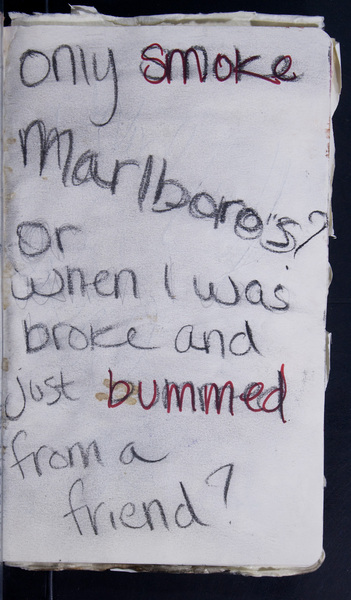 only smoke
Marlboro's?
or
when I was
broke and
just bummed
from a
friend?